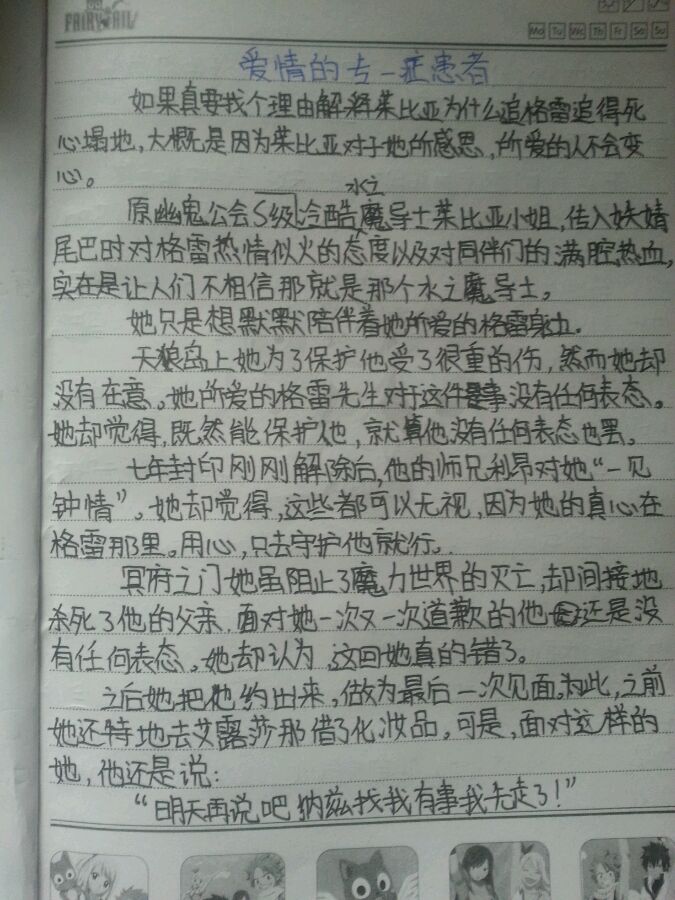 FAIRY TAIL
Mo Tu We Th Fr Sa Su
爱情的专一症患者
如果真要找个理由解释茱比亚为什么追格雷追得死
心塌地,大概是因为茱比亚对于她所感恩,所爱的人不会变
心。
水之
原幽鬼公会S级冷酷魔导士茱比亚小姐,传入妖精
尾巴时对格雷热情似火的态度以及对同伴们的满腔热血,
实在是让人们不相信那就是那个水之魔导士。
她只是想默默陪伴着她所爱的格雷身边。
天狼岛上她为了保护他受了很重的伤,然而她却
没有在意。她所爱的格雷先生对于这件事没有任何表态。
她却觉得,既然能保护他,就算他没有任何表态也罢。
七年封印刚刚解除后,他的师兄利昂对她“一见
钟情”。她却觉得,这些都可以无视,因为她的真心在
格雷那里。用心,只去守护他就行。
冥府之门她虽阻止了魔力世界的灭亡,却间接地
杀死了他的父亲,面对她一次又一次道歉的他还是没
有任何表态。她却认为,这回她真的错了。
之后她把他约出来,做为最后一次见面。为此,之前
她还特地去艾露莎那借了化妆品,可是,面对这样的
她,他还是说:
“明天再说吧纳兹找我有事我先走了!”